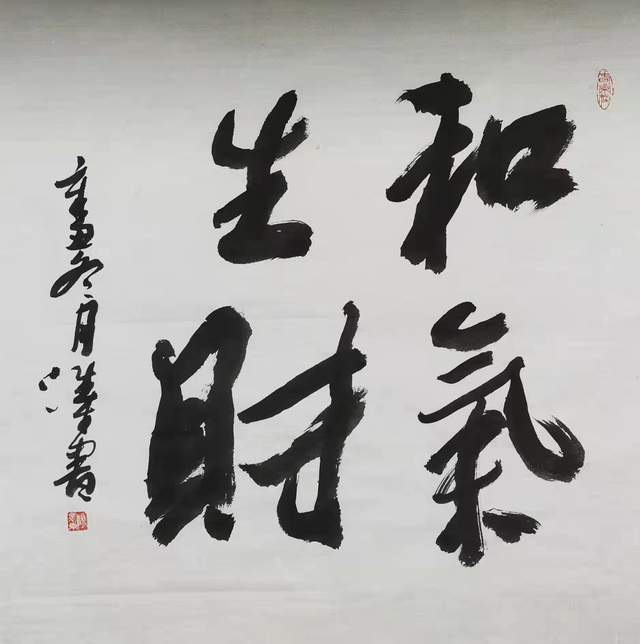 和氣
生財
辛丑冬月
書